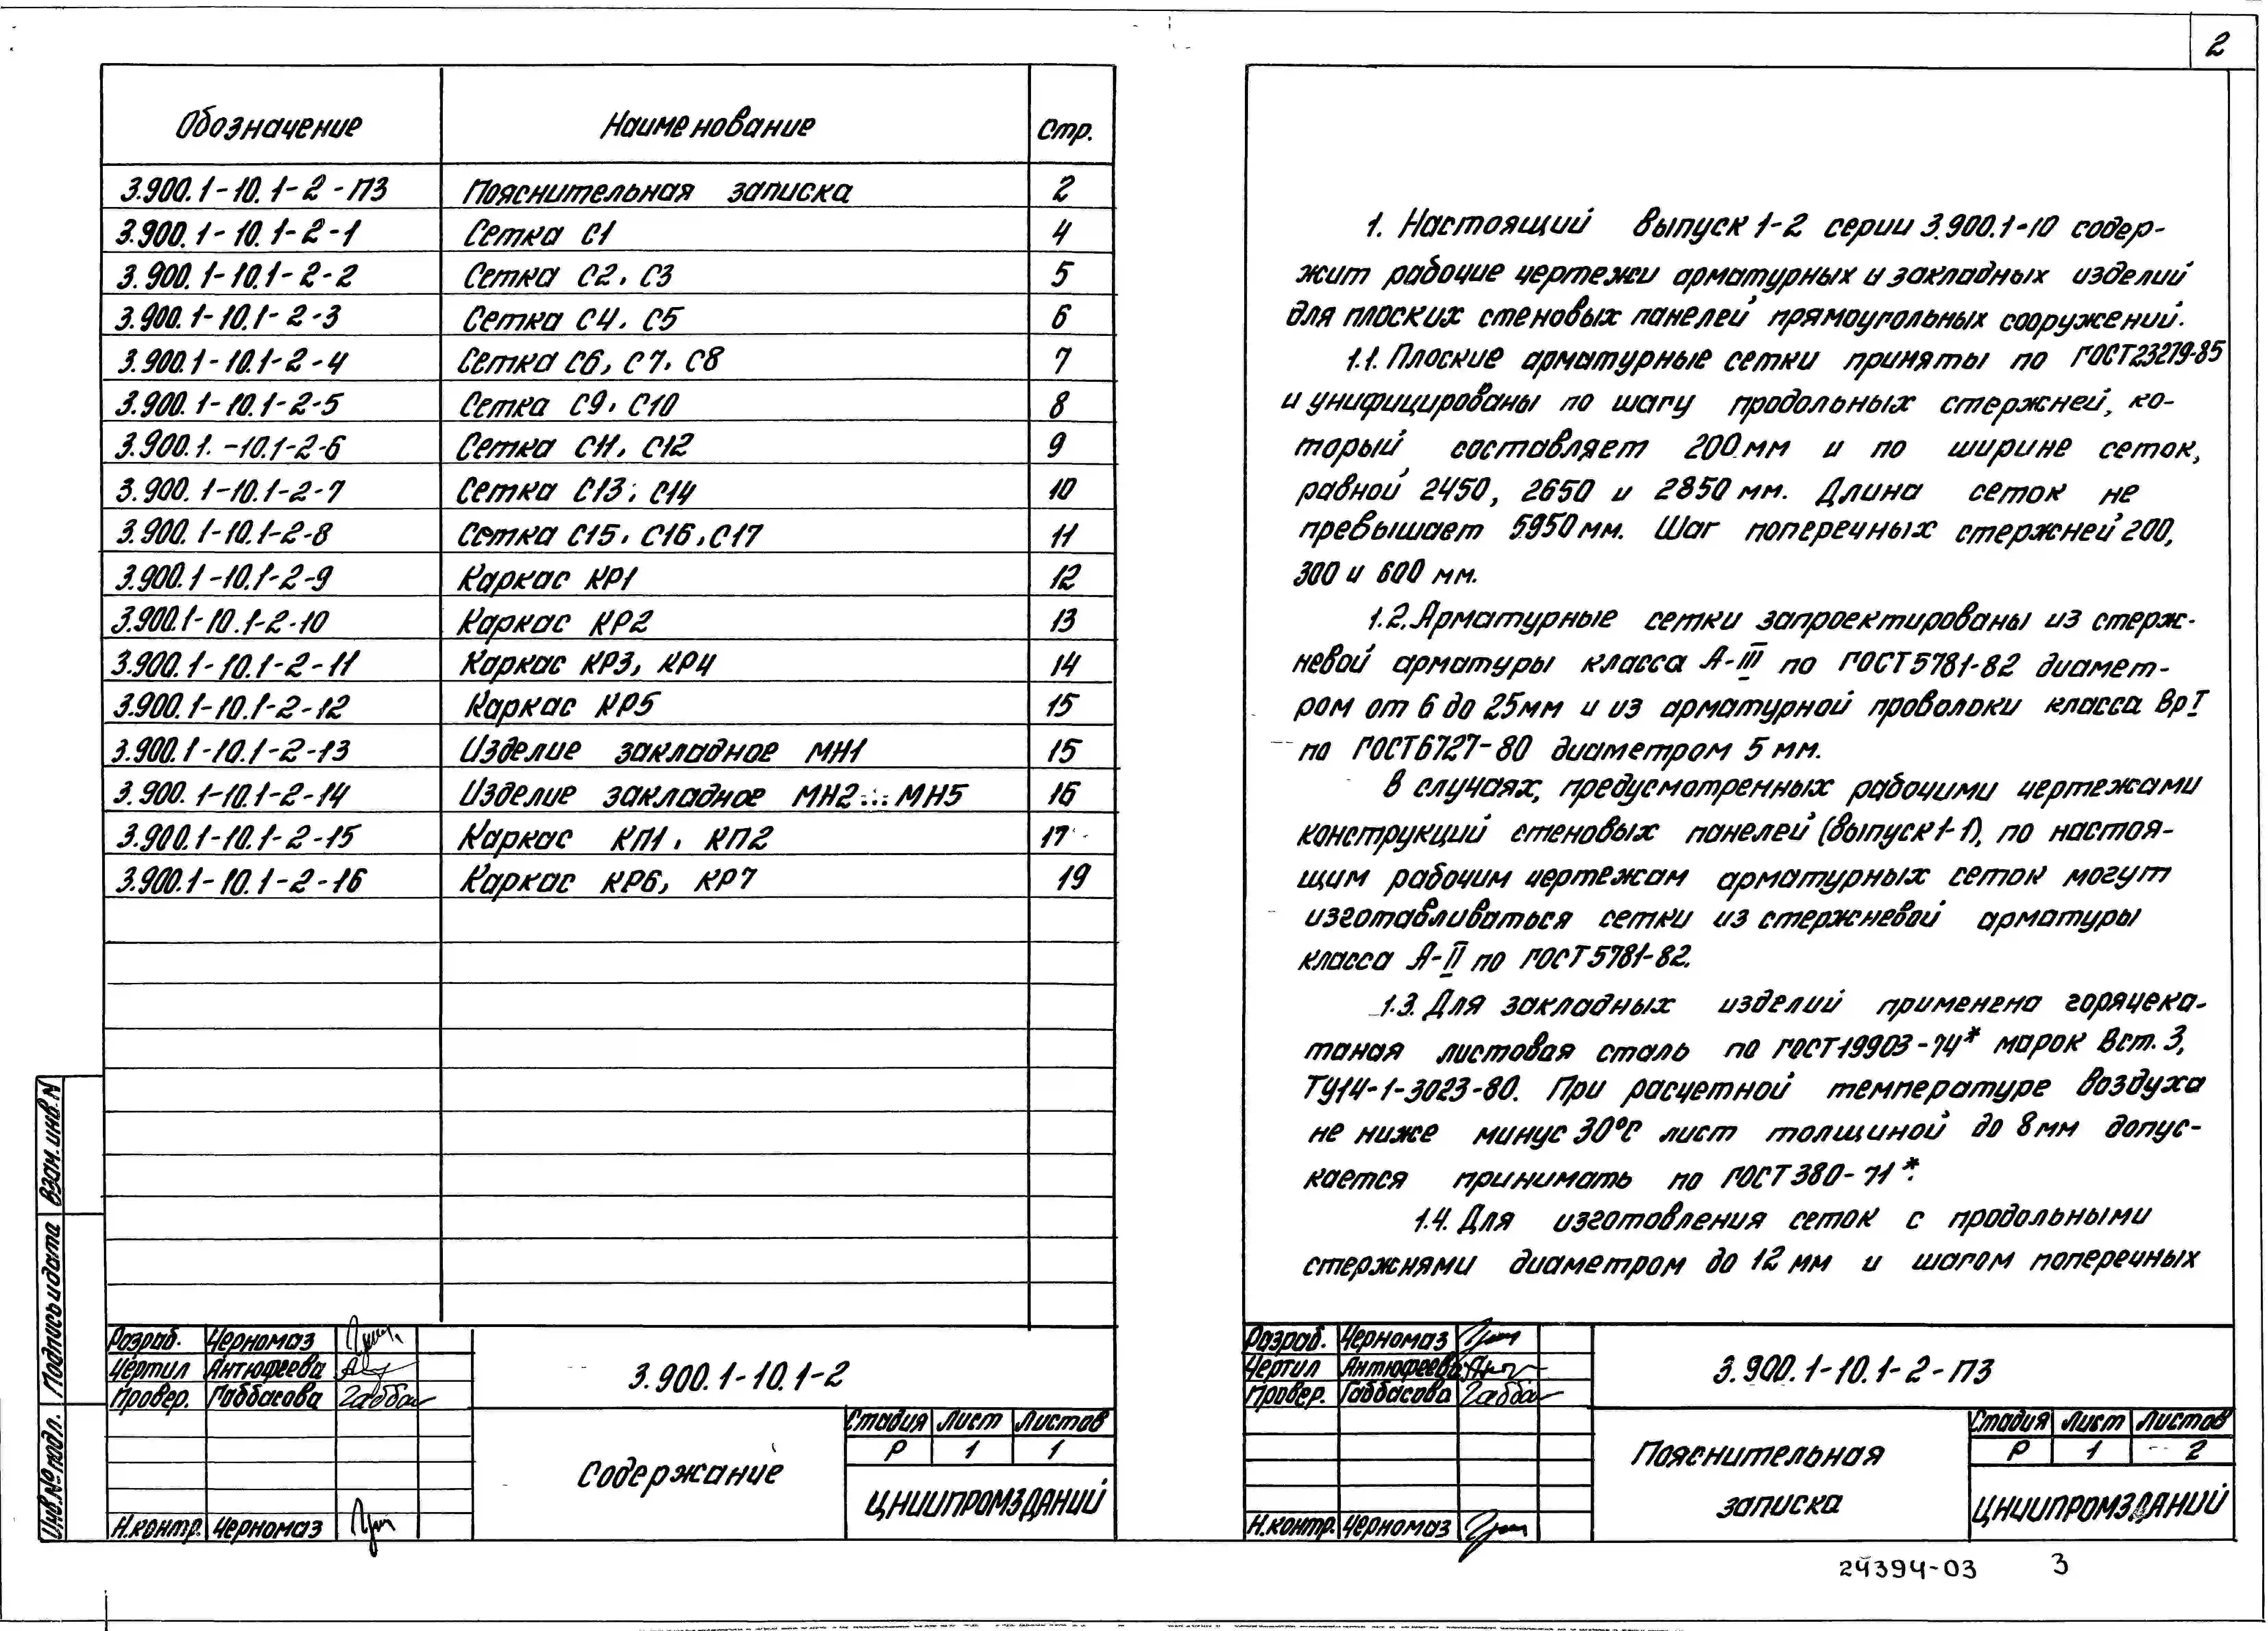 2
Обозначение Наименование Стр.
3.900.1-10.1-2-ПЗ Пояснительная записка 2
3.900.1-10.1-2-1 Сетка С1 4
3.900.1-10.1-2-2 Сетка С2, С3 5
3.900.1-10.1-2-3 Сетка С4, С5 6
3.900.1-10.1-2-4 Сетка С6, С7, С8 7
3.900.1-10.1-2-5 Сетка С9, С10 8
3.900.1.-10.1-2-6 Сетка С11, С12 9
3.900.1-10.1-2-7 Сетка С13, С14 10
3.900.1-10.1-2-8 Сетка С15, С16, С17 11
3.900.1-10.1-2-9 Каркас КР1 12
3.900.1-10.1-2-10 Каркас КР2 13
3.900.1-10.1-2-11 Каркас КР3, КР4 14
3.900.1-10.1-2-12 Каркас КР5 15
3.900.1-10.1-2-13 Изделие закладное МН1 15
3.900.1-10.1-2-14 Изделие закладное МН2...МН5 16
3.900.1-10.1-2-15 Каркас КП1, КП2 17
3.900.1-10.1-2-16 Каркас КР6, КР7 19
Взам. инв. N
Подпись и дата
Инв. № подл.
Разраб. Черномаз
Чертил Антюфеева
Провер. Габбасова
Н.контр. Черномаз
3.900.1-10.1-2
Содержание
Стадия Лист Листов
Р 1 1
ЦНИИПРОМЗДАНИЙ
1. Настоящий выпуск 1-2 серии 3.900.1-10 содер-
жит рабочие чертежи арматурных и закладных изделий
для плоских стеновых панелей прямоугольных сооружений.
1.1. Плоские арматурные сетки приняты по ГОСТ 23279-85
и унифицированы по шагу продольных стержней, ко-
торый составляет 200 мм и по ширине сеток,
равной 2450, 2650 и 2850 мм. Длина сеток не
превышает 5950 мм. Шаг поперечных стержней 200,
300 и 600 мм.
1.2. Арматурные сетки запроектированы из стерж-
невой арматуры класса А-III по ГОСТ 5781-82 диамет-
ром от 6 до 25мм и из арматурной проволоки класса ВрI
по ГОСТ 6727-80 диаметром 5 мм.
В случаях, предусмотренных рабочими чертежами
конструкций стеновых панелей (выпуск 1-1), по настоя-
щим рабочим чертежам арматурных сеток могут
изготавливаться сетки из стержневой арматуры
класса А-II по ГОСТ 5781-82.
1.3. Для закладных изделий применена горячека-
таная листовая сталь по ГОСТ 19903-74* марок Вст. 3,
ТУ14-1-3023-80. При расчетной температуре воздуха
не ниже минус 30°С лист толщиной до 8мм допус-
кается принимать по ГОСТ 380-71*.
1.4. Для изготовления сеток с продольными
стержнями диаметром до 12 мм и шагом поперечных
Разраб. Черномаз
Чертил Антюфеева
Провер. Габбасова
Н.контр. Черномаз
3.900.1-10.1-2-ПЗ
Пояснительная
записка
Стадия Лист Листов
Р 1 2
ЦНИИПРОМЗДАНИЙ
24394-03 3